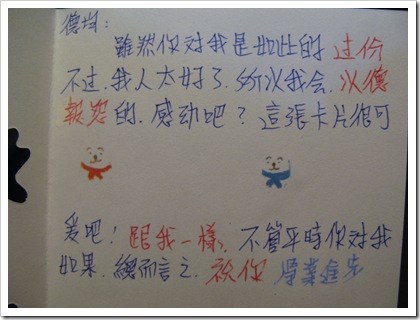 德均：
雖然你对我是如此的过份
不过.我人太好了.所以我会.以德
報怨的.感动吧？這張卡片很可
爱吧！跟我一樣.不管平時你对我
如果.總而言之.祝你 學業進步